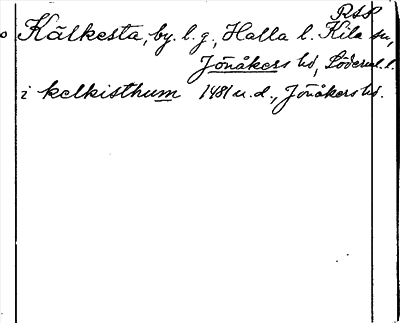 RSP
Kälkesta, by. l. g., Halla l. Kila sn,
Jönåkers hd, Söderml. l.
i kelkisthum 1481 u. d., Jönåkers hd.